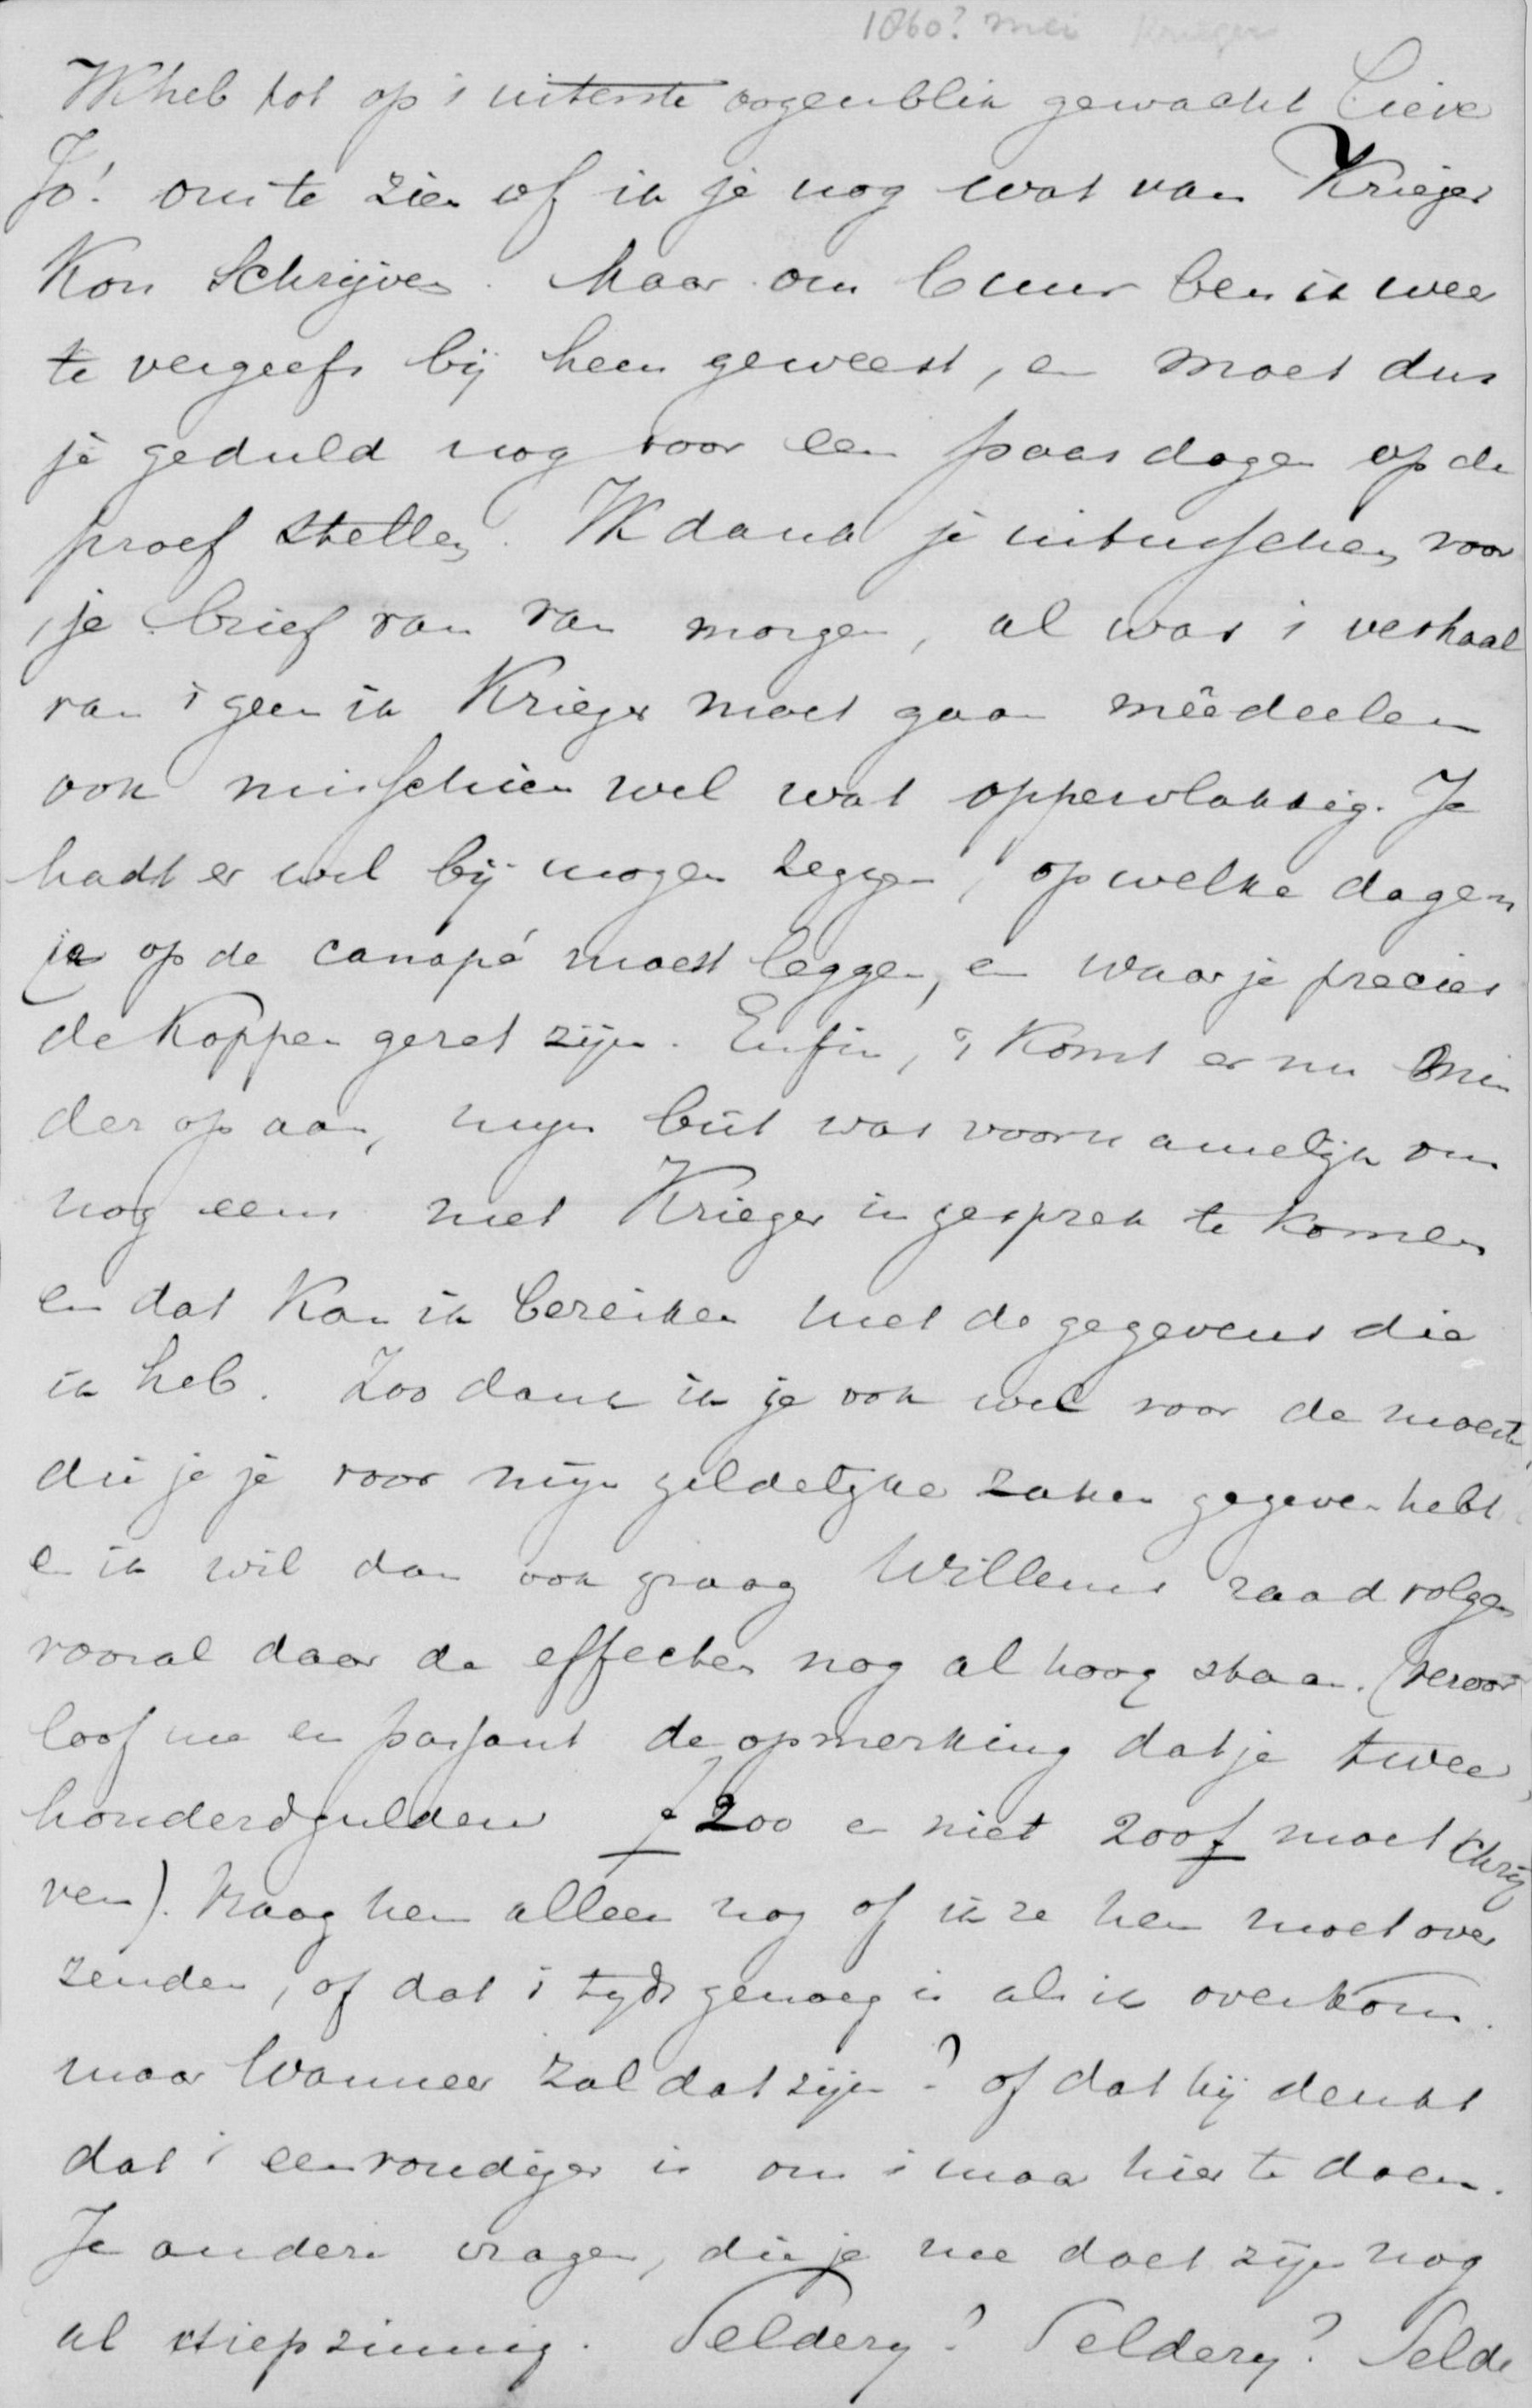 1860? mei Krieger
Ik heb tot op 't uiterste oogenblik gewacht Lieve
Jo! om te zien of ik je nog wat van Krieger
Kon Schrijven. Maar om 6 uur ben ik weer
te vergeefs bij hem geweest, en moet dus
je geduld nog voor een paar dagen op de
proef stellen. Ik dank je intusschen voor
je brief van van morgen, al was 't verhaal
van 't geen ik Krieger moet gaan mêedeelen
ook misschien wel wat oppervlakkig. Je
hadt er wel bij mogen zeggen, op welke dagen
ik op de canapé moest leggen, en waar je precies
de Koppen gezet zijn. Enfin, 't Komt er nu min
der op aan, mijn but was voornamelijk om
nog eens met Krieger in gesprek te Komen
en dat Kan ik bereiken met de gegevens die
ik heb. Zoo dank ik je ook wel voor de moeite,
die je je voor mijn geldelijke zaken gegeven hebt
en ik wil dan ook graag Willems raad volgen
vooral daar de effecten nog al hoog staan. (veroor
loof me en passant de opmerking dat je twee
honderd gulden f 200 en niet 200 f moet schrij
ven). Vraag hem alleen nog of ik ze hem moet over
zenden, of dat 't tijds genoeg is als ik overkom.
maar Wanneer zal dat zijn? of dat hij denkt
dat 't eenvoudiger is om 't maar hier te doen.
Je andere vragen, die je me doet zijn nog
al diepzinnig. Seldery? Seldery? Selde